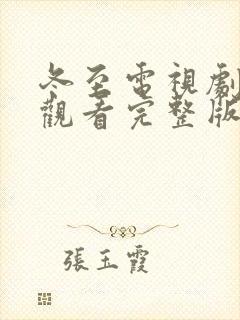 冬至電視劇
觀看完整版
張玉霞